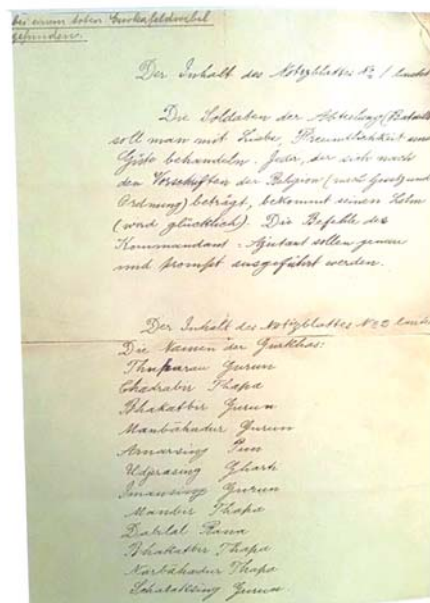 bei einem toten Gurkafeldwebel
gefunden.
Der Inhalt des Notizblattes No 1 lautet
Die Soldaten der Abteilung (Batail
soll man mit Liebe, Freundlichkeit und
Güte behandeln. Jeder, der sich nach
den Vorschriften der Religion (nach Gesetz und
Ordnung) beträgt, bekommt seinen Lohn
(wird glücklich). Die Befehle des
Kommandant - Ajutant sollen genau
und prompt ausgeführt werden.
Der Inhalt des Notizblattes No 2 lautet
Die Namen der Gurkhas:
Gurun
Chadrabir Thapa
Bhakatbir Gurun
Manbähadur Gurun
Amarsing Pun
Udjerasing Gharti
Imansing Gurun
Manbir Thapa
Dablal Rana
Bhakatbir Thapa
Narbähadur Thapa
Gurun